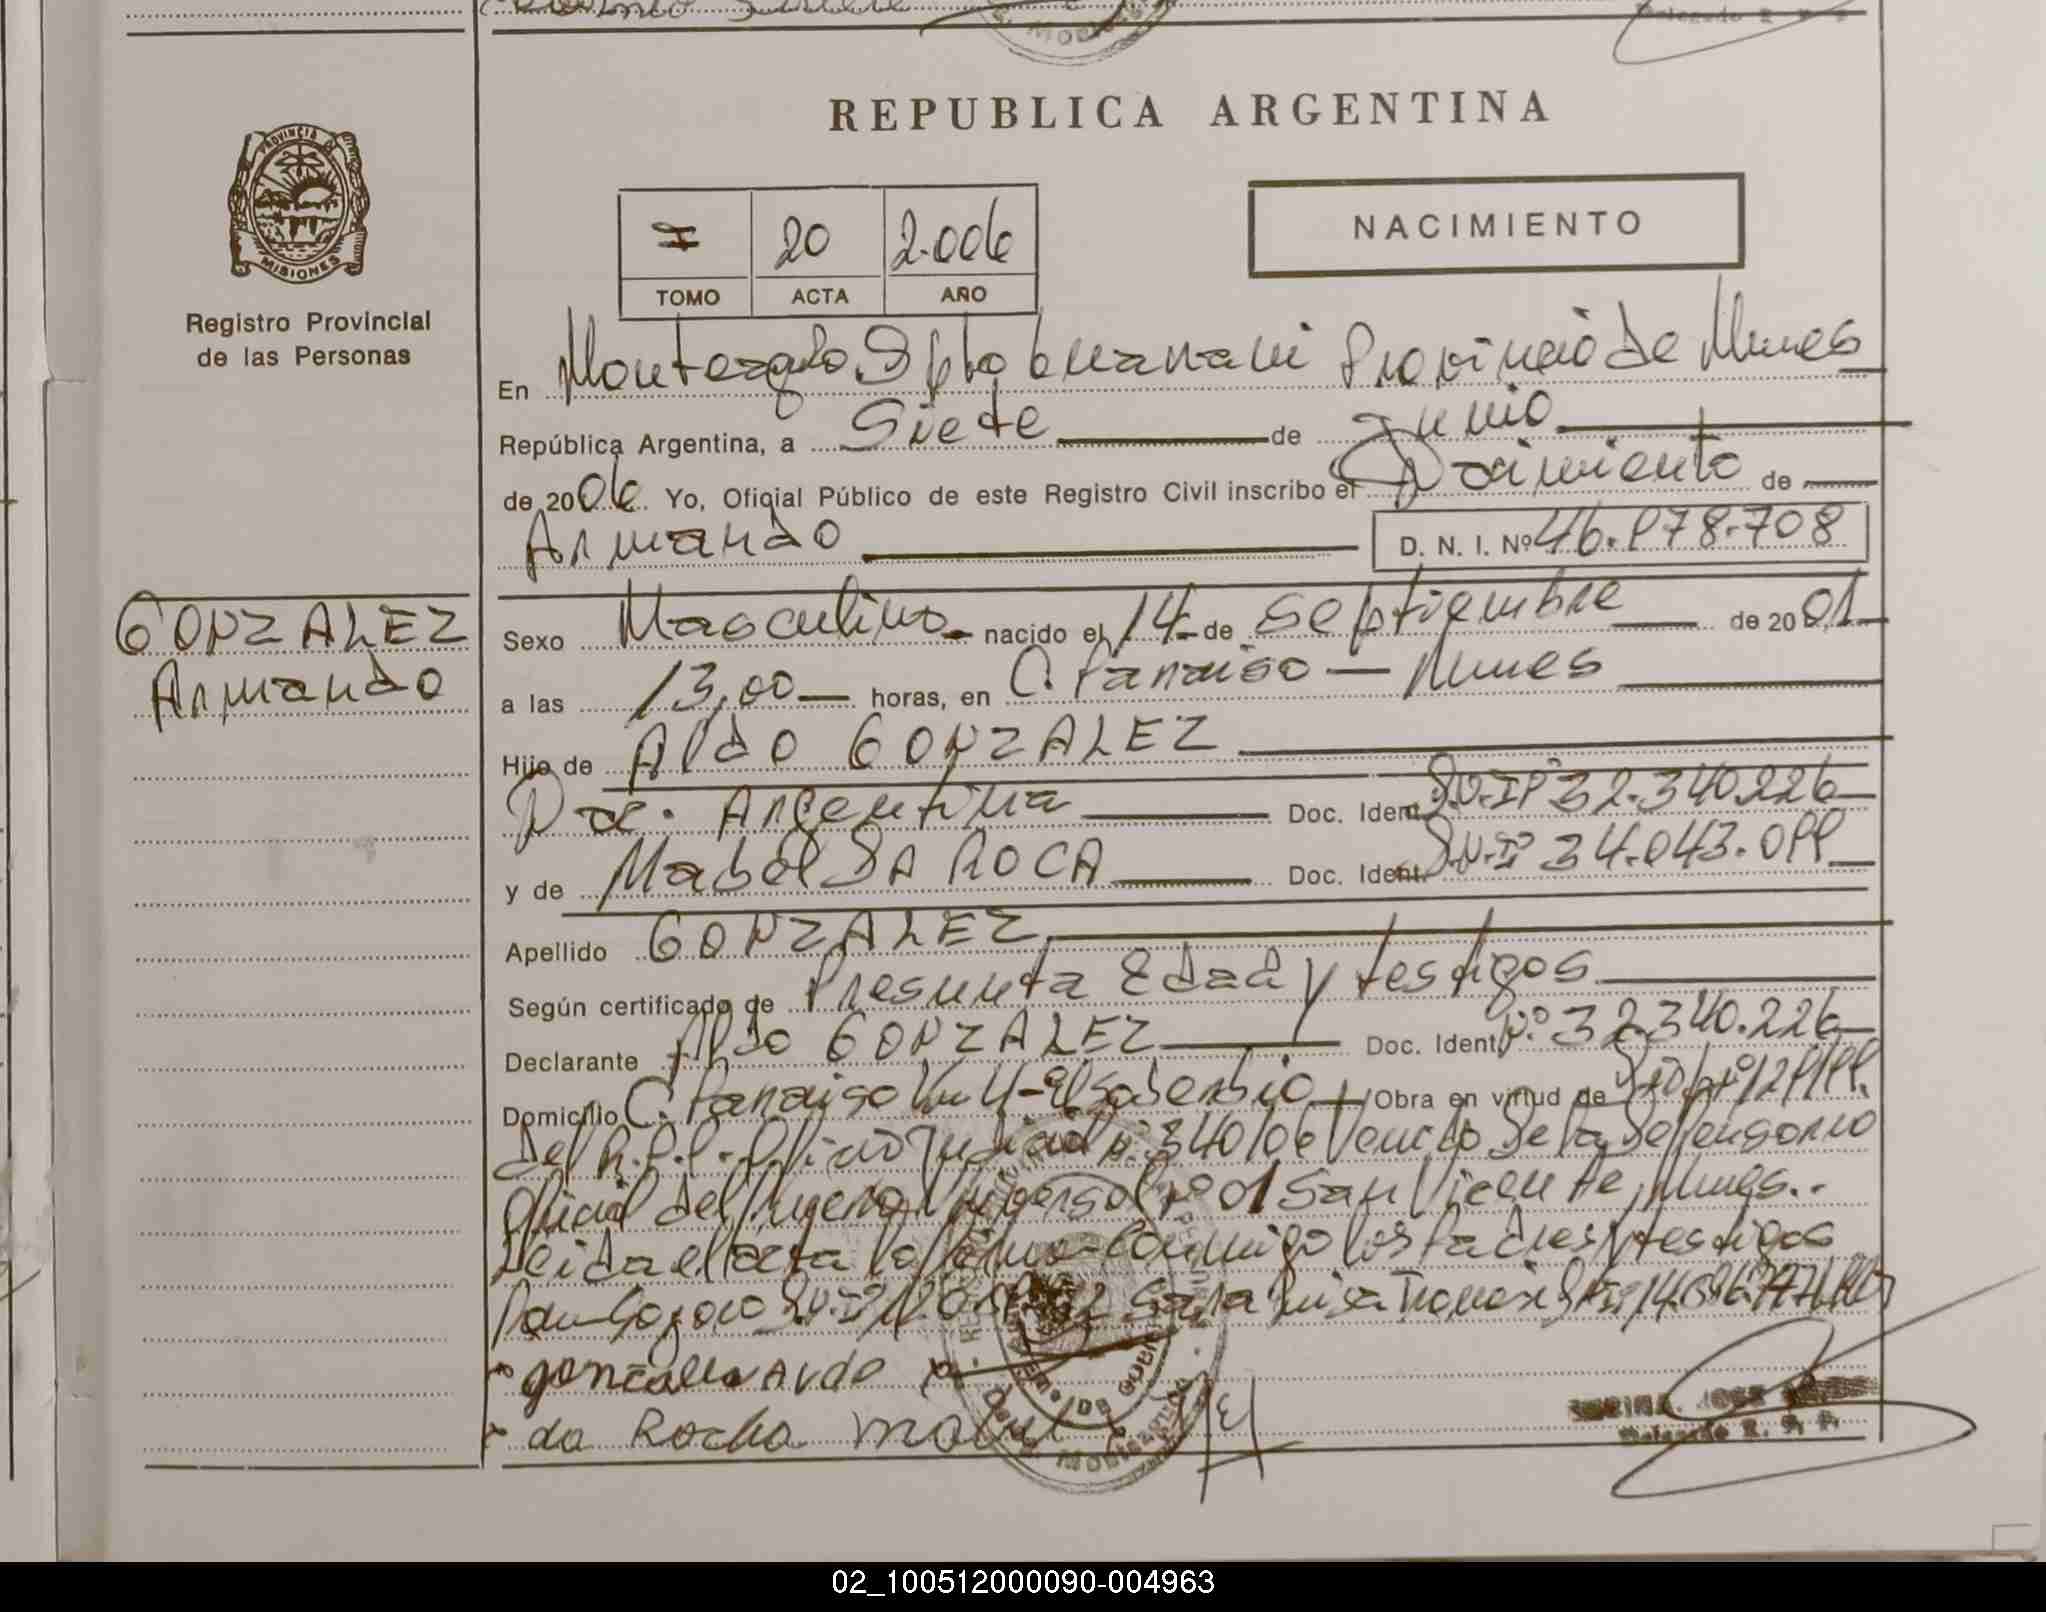 REPUBLICA ARGENTINA
PROVINCIA DE
MISIONES
Registro Provincial
de las Personas
I 20 2.006
TOMO ACTA AÑO
NACIMIENTO
En Monteagudo Dpto Guarani Provincia de Mnes
República Argentina, a Siete de Junio
de 2006 Yo, Oficial Público de este Registro Civil inscribo el Nacimiento de
Armando D. N. I. Nº 46.878.708
GONZALEZ
Armando
Sexo Masculino nacido el 14 de Septiembre de 2001
a las 13,00 horas, en C. Paraiso - Mnes
Hijo de Aldo GONZALEZ
Nac. Argentina Doc. Ident. D.N.Iº 32.340.226
y de Mabel DA ROCA Doc. Ident. D.N.Iº 34.043.
Apellido GONZALEZ
Según certificado de Presunta Edad y testigos
Declarante Aldo GONZALEZ Doc. Ident. Nº 32.340.226
Domicilio C. Paraiso Km 4 - El Soberbio Obra en virtud de
del R.P.P. - Oficio Judicial Nº 340/06 de la Defensoria
Oficial del Nº 01 San Vicente, Mnes.
Leida el acta la firma conmigo los Padres y testigos
Sara
gonzales Aldo
da Rocha mabel
JOSE
Delegado R. P. P.
02_100512000090-004963